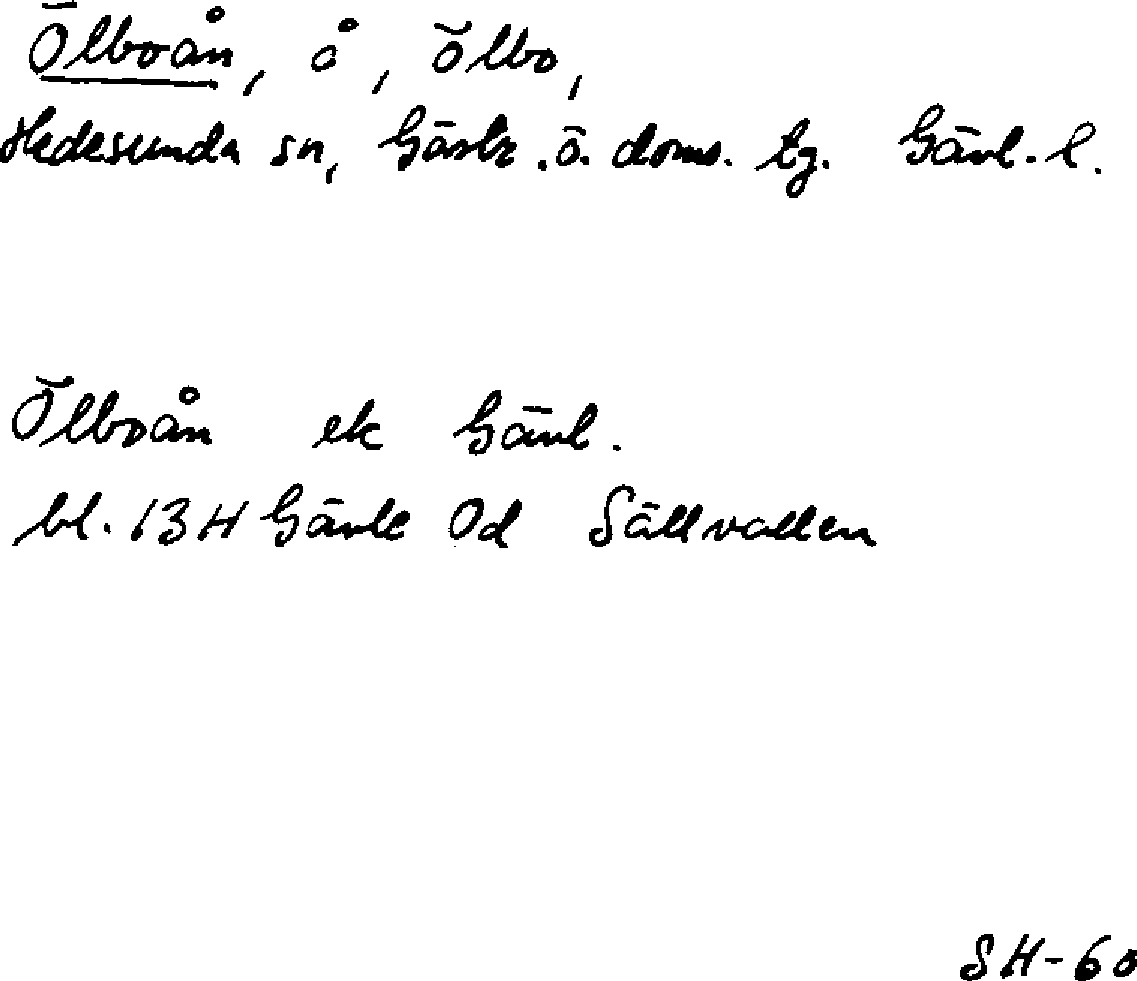 Ölboån, å, Ölbo,
Hedesunda sn, Gästr. ö. doms. tg. Gävl. l.
Ölboån ek Gävl.
bl. 13H Gävle 0d Sällvallen
SH-60